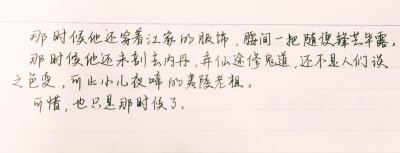 那时候他还穿着江家的服饰，腰间一把随便锋芒毕露。
那时候他还未剖去内丹，弃仙途修鬼道，还不是人们谈
之色变，可止小儿夜啼的夷陵老祖。
可惜，也只是那时候了。